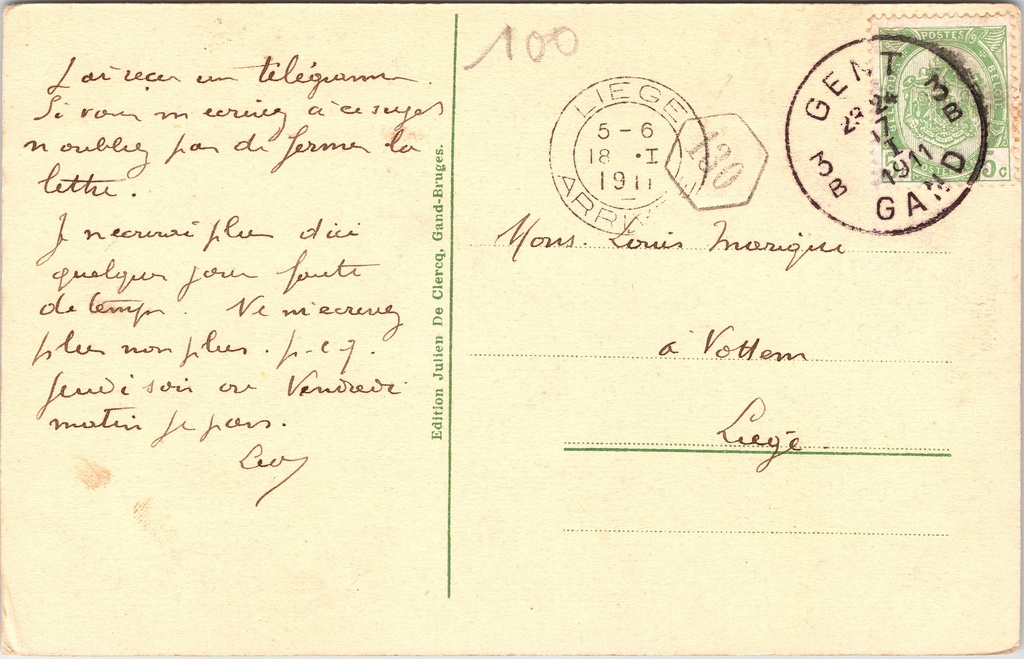 J'ai reçu un télégramme.
Si vous m'ecrivez à ce sujet
n'oubliez pas de fermer la
lettre.
Je n'ecrirai plus d'ici
quelques jours faute
de temps. Ne m'ecrivez
plus non plus. p.c.q.
Jeudi soir ou Vendredi
matin je pars.
Leo
Edition Julien De Clercq, Gand-Bruges.
100
LIEGE
5-6
18 .I
1911
130
GENT 3B
23-24
17 I
1911
3B GAND
POSTES
5c
Mons. Louis
à Vottem
Liége.